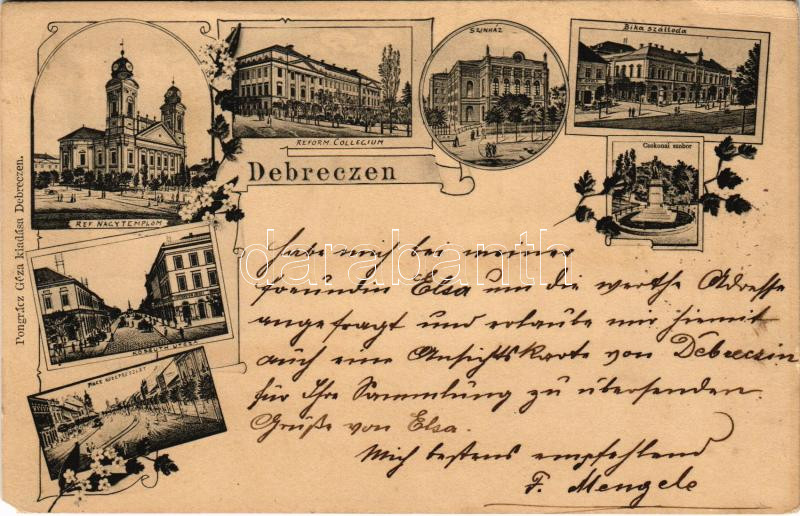 SZINHÁZ
Bika szálloda
REFORM. COLLEGIUM
Csokonai szobor
Debreczen
REF. NAGYTEMPLOM
Pongrácz Géza kiadása Debreczen.
KOSSUTH UTCZA
PIACZ KÖZÉPRÉSZLET
darabanth
habe mich bei meiner
freundin Elsa um die werthe Adresse
angefragt und erlaube mir hiemit
auch eine Ansichtskarte von Debreczin
für Ihre Sammlung zu übersenden.
Grüße von Elsa.
Mich bestens empfehlend
F. Mengele